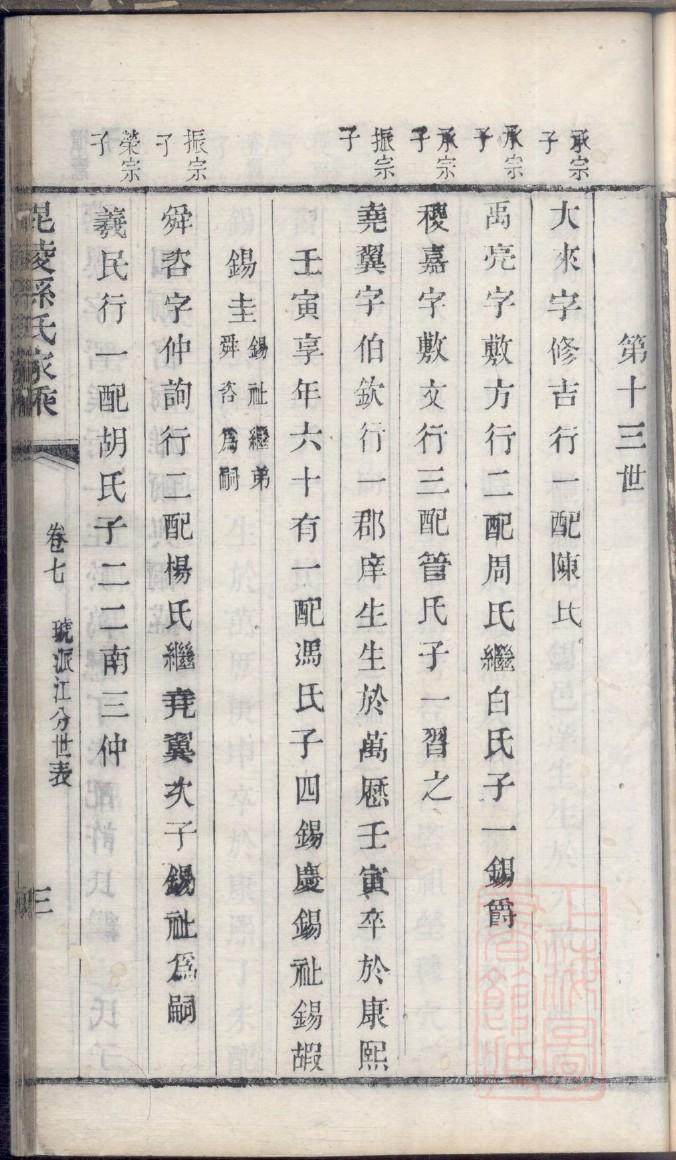 第十三世
承宗子
大來字修吉行一配陳氏
承宗子
禹亮字敷方行二配周氏繼白氏子一錫爵
承宗子
稷嘉字敷文行三配管氏子一習之
振宗子
堯翼字伯欽行一郡庠生生於萬厯壬寅卒於康熙
壬寅享年六十有一配馮氏子四錫慶錫祉錫嘏
錫圭錫祉繼弟
舜咨為嗣
振宗子
舜咨字仲詢行二配楊氏繼堯翼次子錫祉為嗣
榮宗子
羲民行一配胡氏子二二南三仲
毘陵孫氏家乘
卷七
琥派江分世表
三
上海圖書館藏